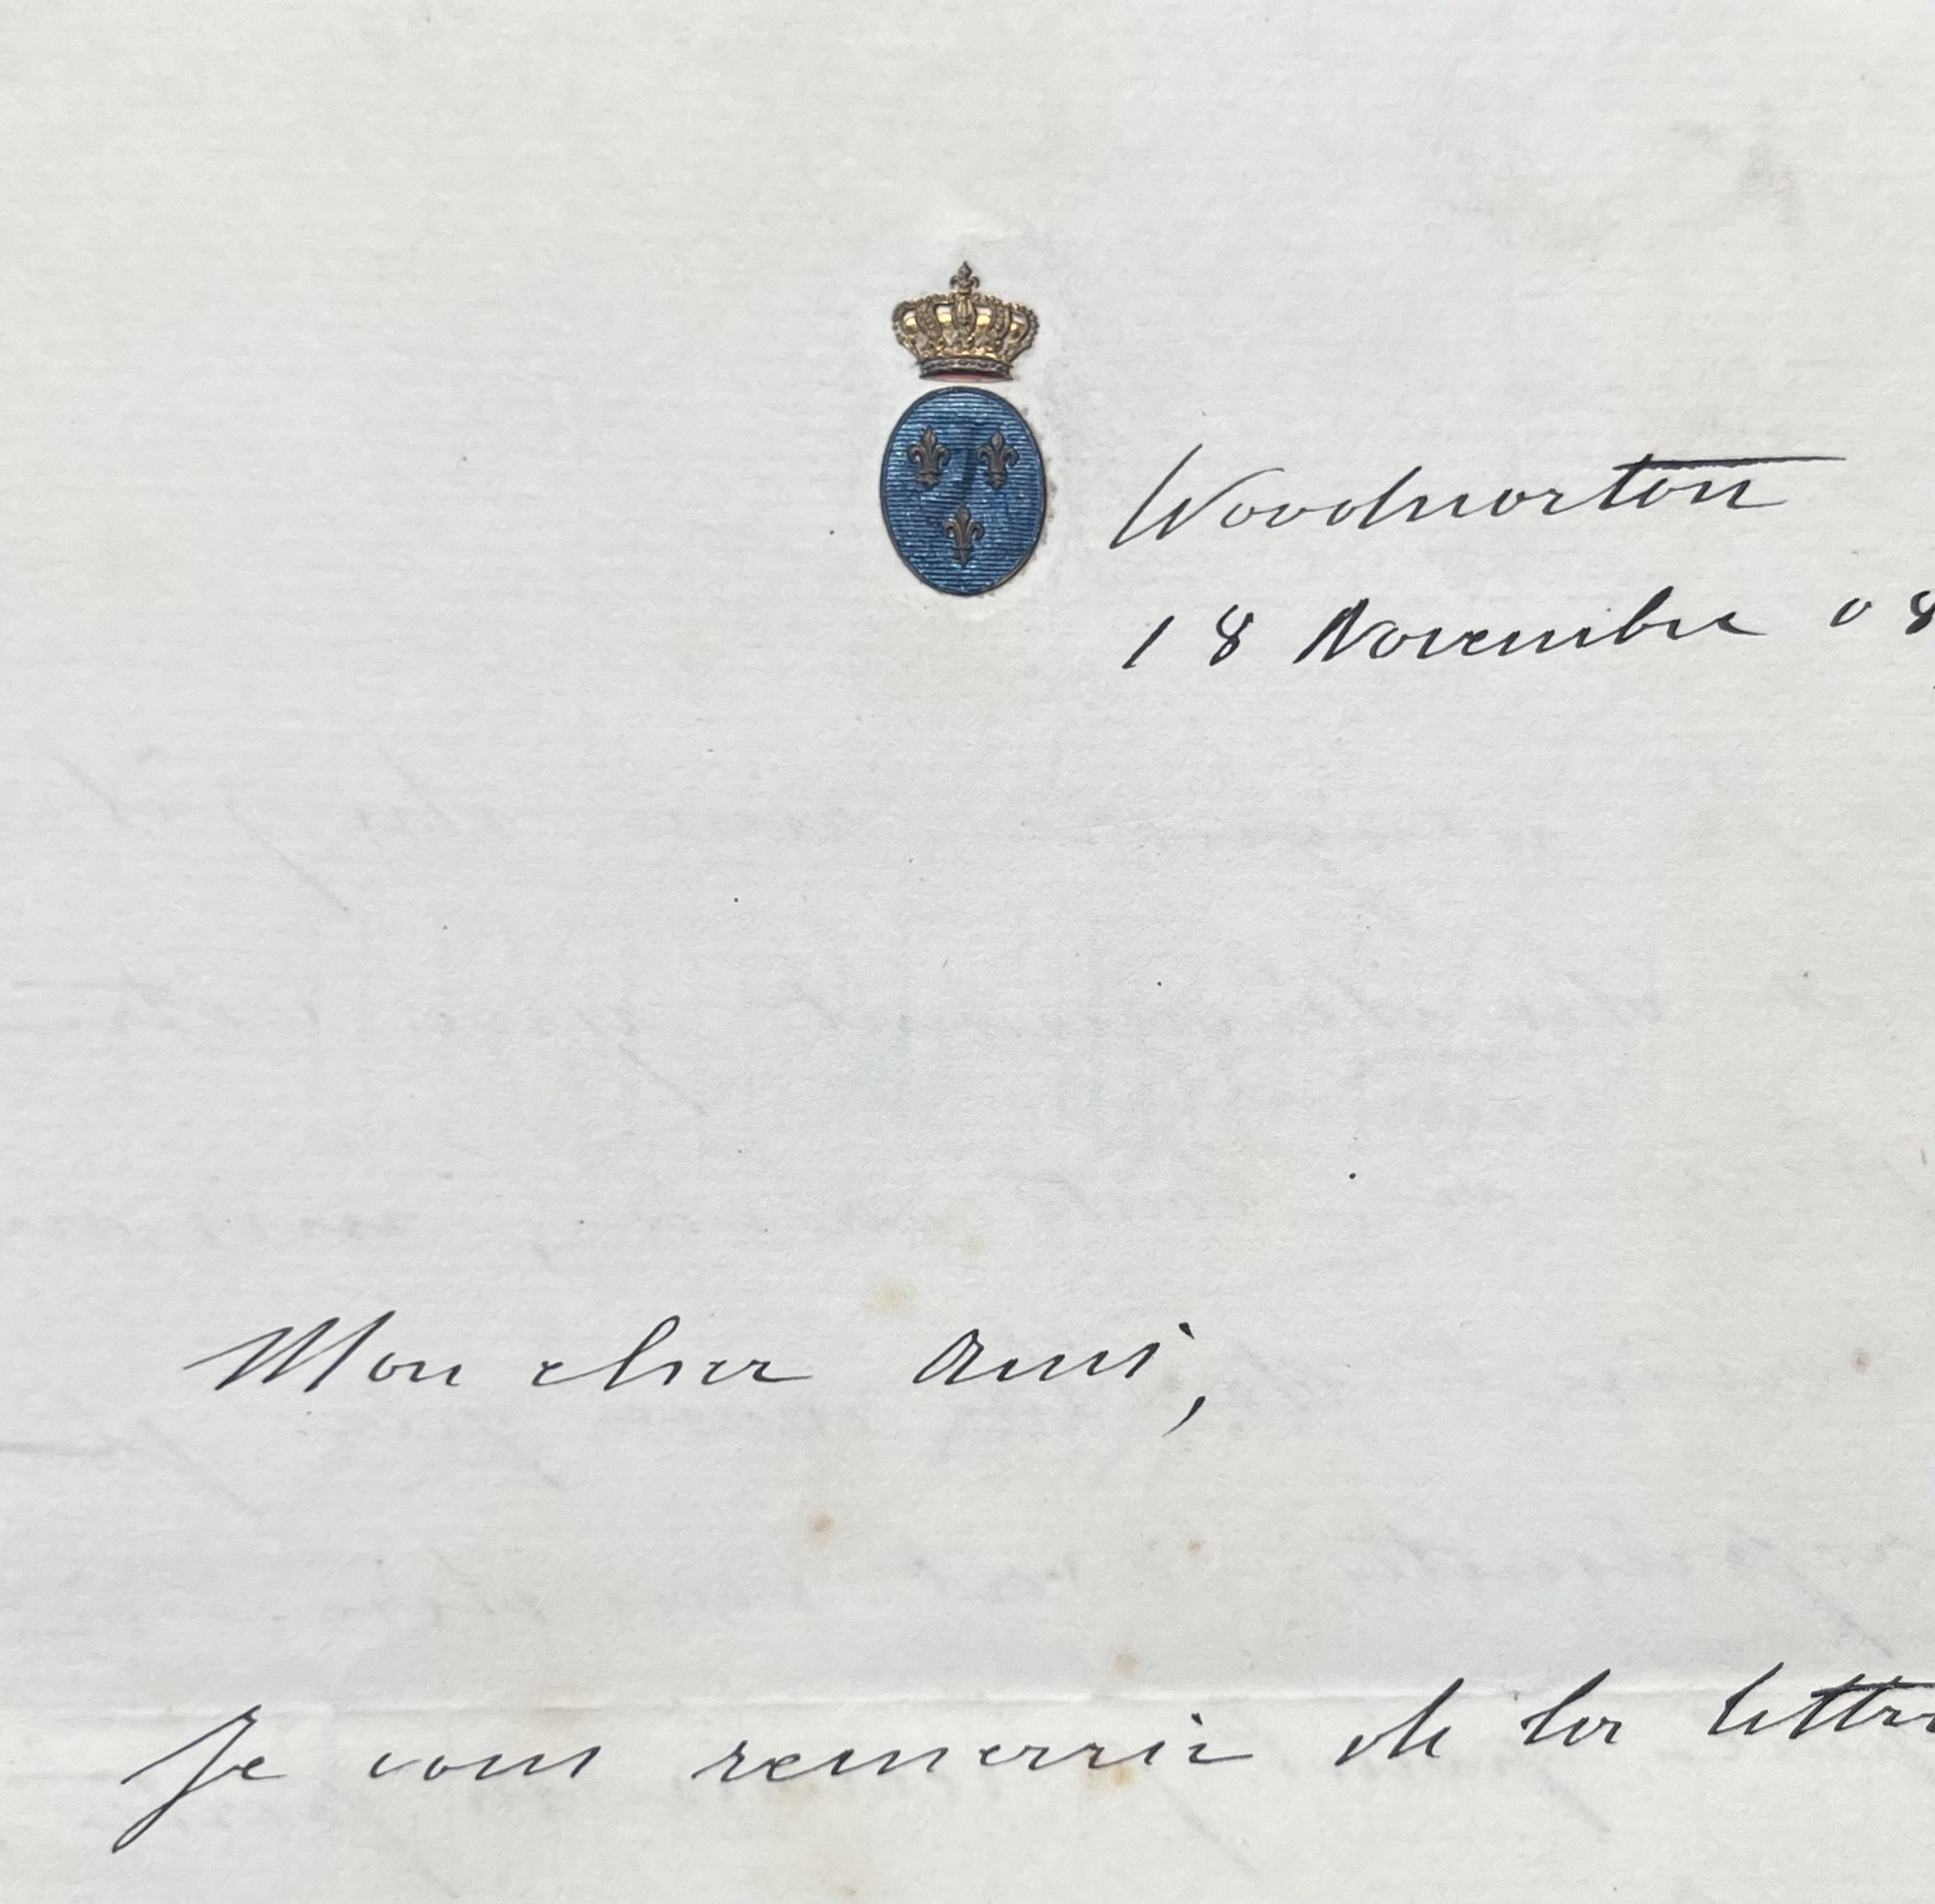 Woodnorton
18 Novembre 08
Mon cher ami,
Je vous remercie de la lettre